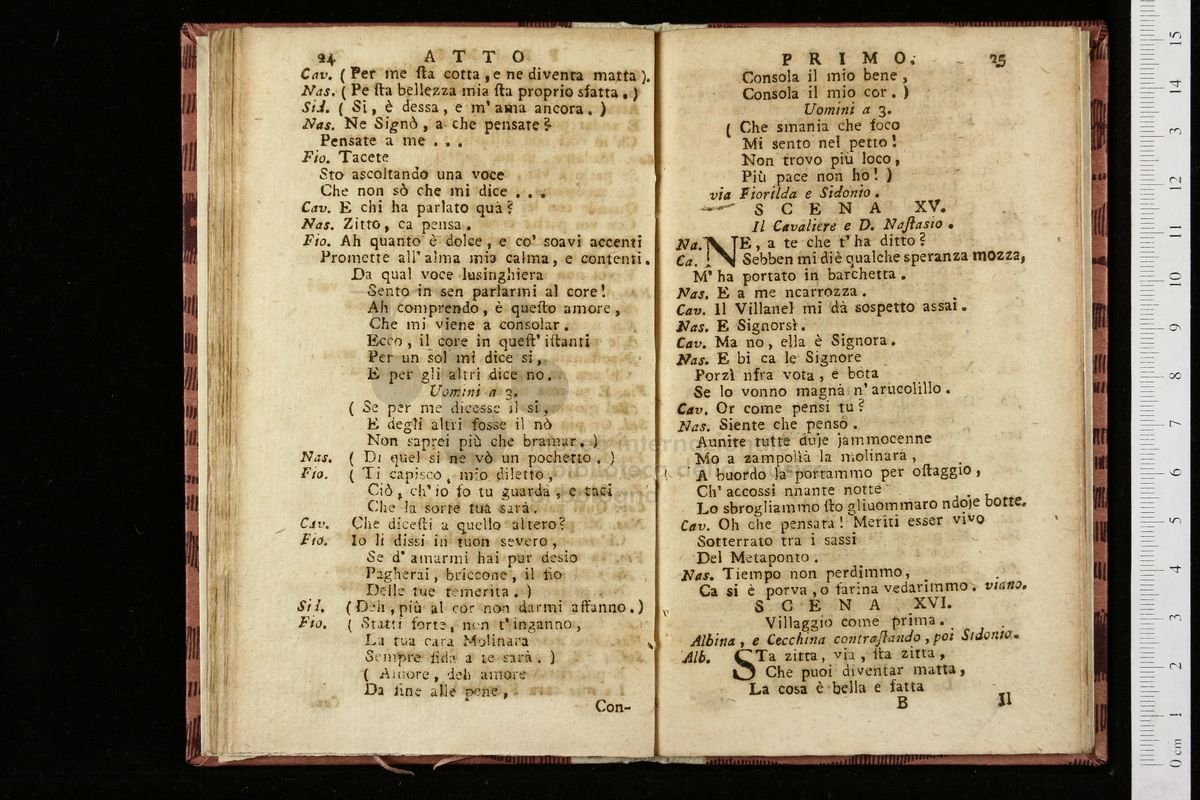 24 ATTO
Cav. (Per me sta cotta, e ne diventa matta).
Nas. (Pe sta bellezza mia sta proprio sfatta.)
Sid. (Si, è dessa, e m'ama ancora.)
Nas. Ne Signò, a che pensate?
Pensate a me...
Fio. Tacete
Sto ascoltando una voce
Che non sò che mi dice...
Cav. E chi ha parlato quà?
Nas. Zitto, ca pensa.
Fio. Ah quanto è dolce, e co' soavi accenti
Promette all'alma mia calma, e contenti.
Da qual voce lusinghiera
Sento in sen parlarmi al core!
Ah comprendo, è questo amore,
Che mi viene a consolar.
Ecco, il core in quest'istanti
Per un sol mi dice si,
E per gli altri dice no.
Uomini a 3.
(Se per me dicesse il si,
E degli altri fosse il nò
Non saprei più che bramar.)
Nas. (Di quel si ne vò un pochetto.)
Fio. (Ti capisco, mio diletto,
Ciò, ch'io fo tu guarda, e taci
Che la sorte tua sarà.
Cav. Che dicesti a quello altero?
Fio. Io li dissi in tuon severo,
Se d'amarmi hai pur desio
Pagherai, briccone, il fio
Delle tue temerità.)
Sid. (Deh, più al cor non darmi affanno.)
Fio. (Statti forte, non t'inganno,
La tua cara Molinara
Sempre fida a te sarà.)
(Amore, deh amore
Da fine alle pene,
Con-
PRIMO. 25
Consola il mio bene,
Consola il mio cor.)
Uomini a 3.
(Che smania che foco
Mi sento nel petto!
Non trovo più loco,
Più pace non ho!)
via Fiorilda e Sidonio.
SCENA XV.
Il Cavaliere e D. Nastasio.
Na. NE, a te che t'ha ditto?
Ca. Sebben mi diè qualche speranza mozza,
M'ha portato in barchetta.
Nas. E a me ncarrozza.
Cav. Il Villanel mi dà sospetto assai.
Nas. E Signorsì.
Cav. Ma no, ella è Signora.
Nas. E bi ca le Signore
Porzì nfra vota, e bota
Se lo vonno magnà n'arucolillo.
Cav. Or come pensi tu?
Nas. Siente che penso.
Aunite tutte duje jammocenne
Mo a zampollà la molinara,
A buordo la portammo per ostaggio,
Ch'accossi nnante notte
Lo sbrogliammo sto gliuommaro ndoje botte.
Cav. Oh che pensata! Meriti esser vivo
Sotterrato tra i sassi
Del Metaponto.
Nas. Tiempo non perdimmo,
Ca si è porva, o farina vedarimmo. viano.
SCENA XVI.
Villaggio come prima.
Albina, e Cecchina contrastando, poi Sidonio.
Alb. STa zitta, via, sta zitta,
Che puoi diventar matta,
La cosa è bella e fatta
B Il